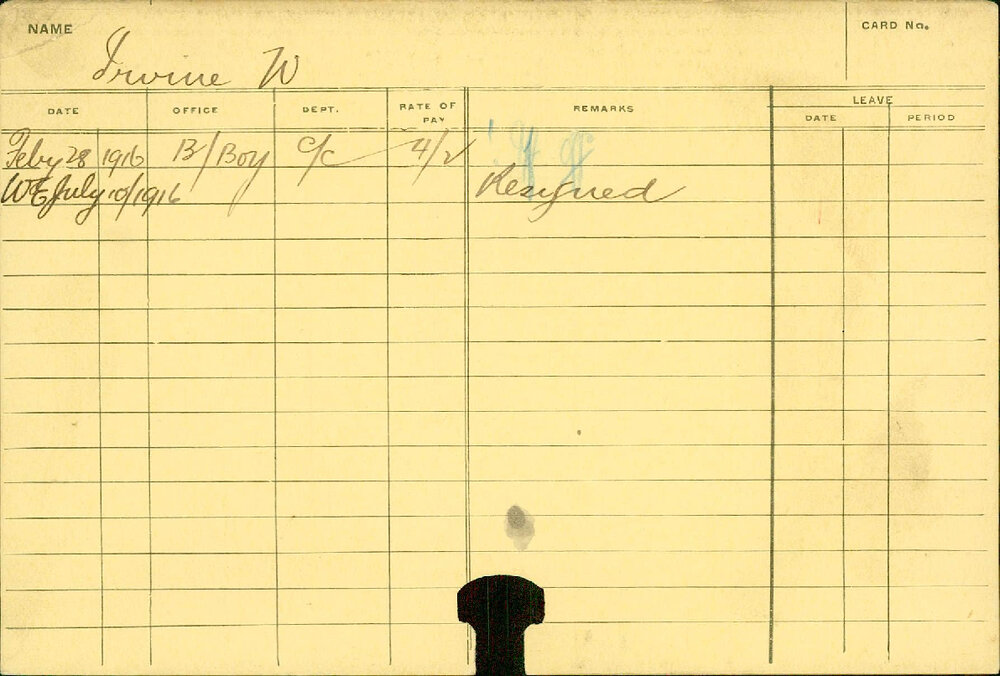 NAME
CARD No.
Irvine W
DATE OFFICE DEPT. RATE OF PAY REMARKS LEAVE
DATE PERIOD
Feby 28 1916 B/Boy C/C 4/2
WE July 10/1916 Resigned